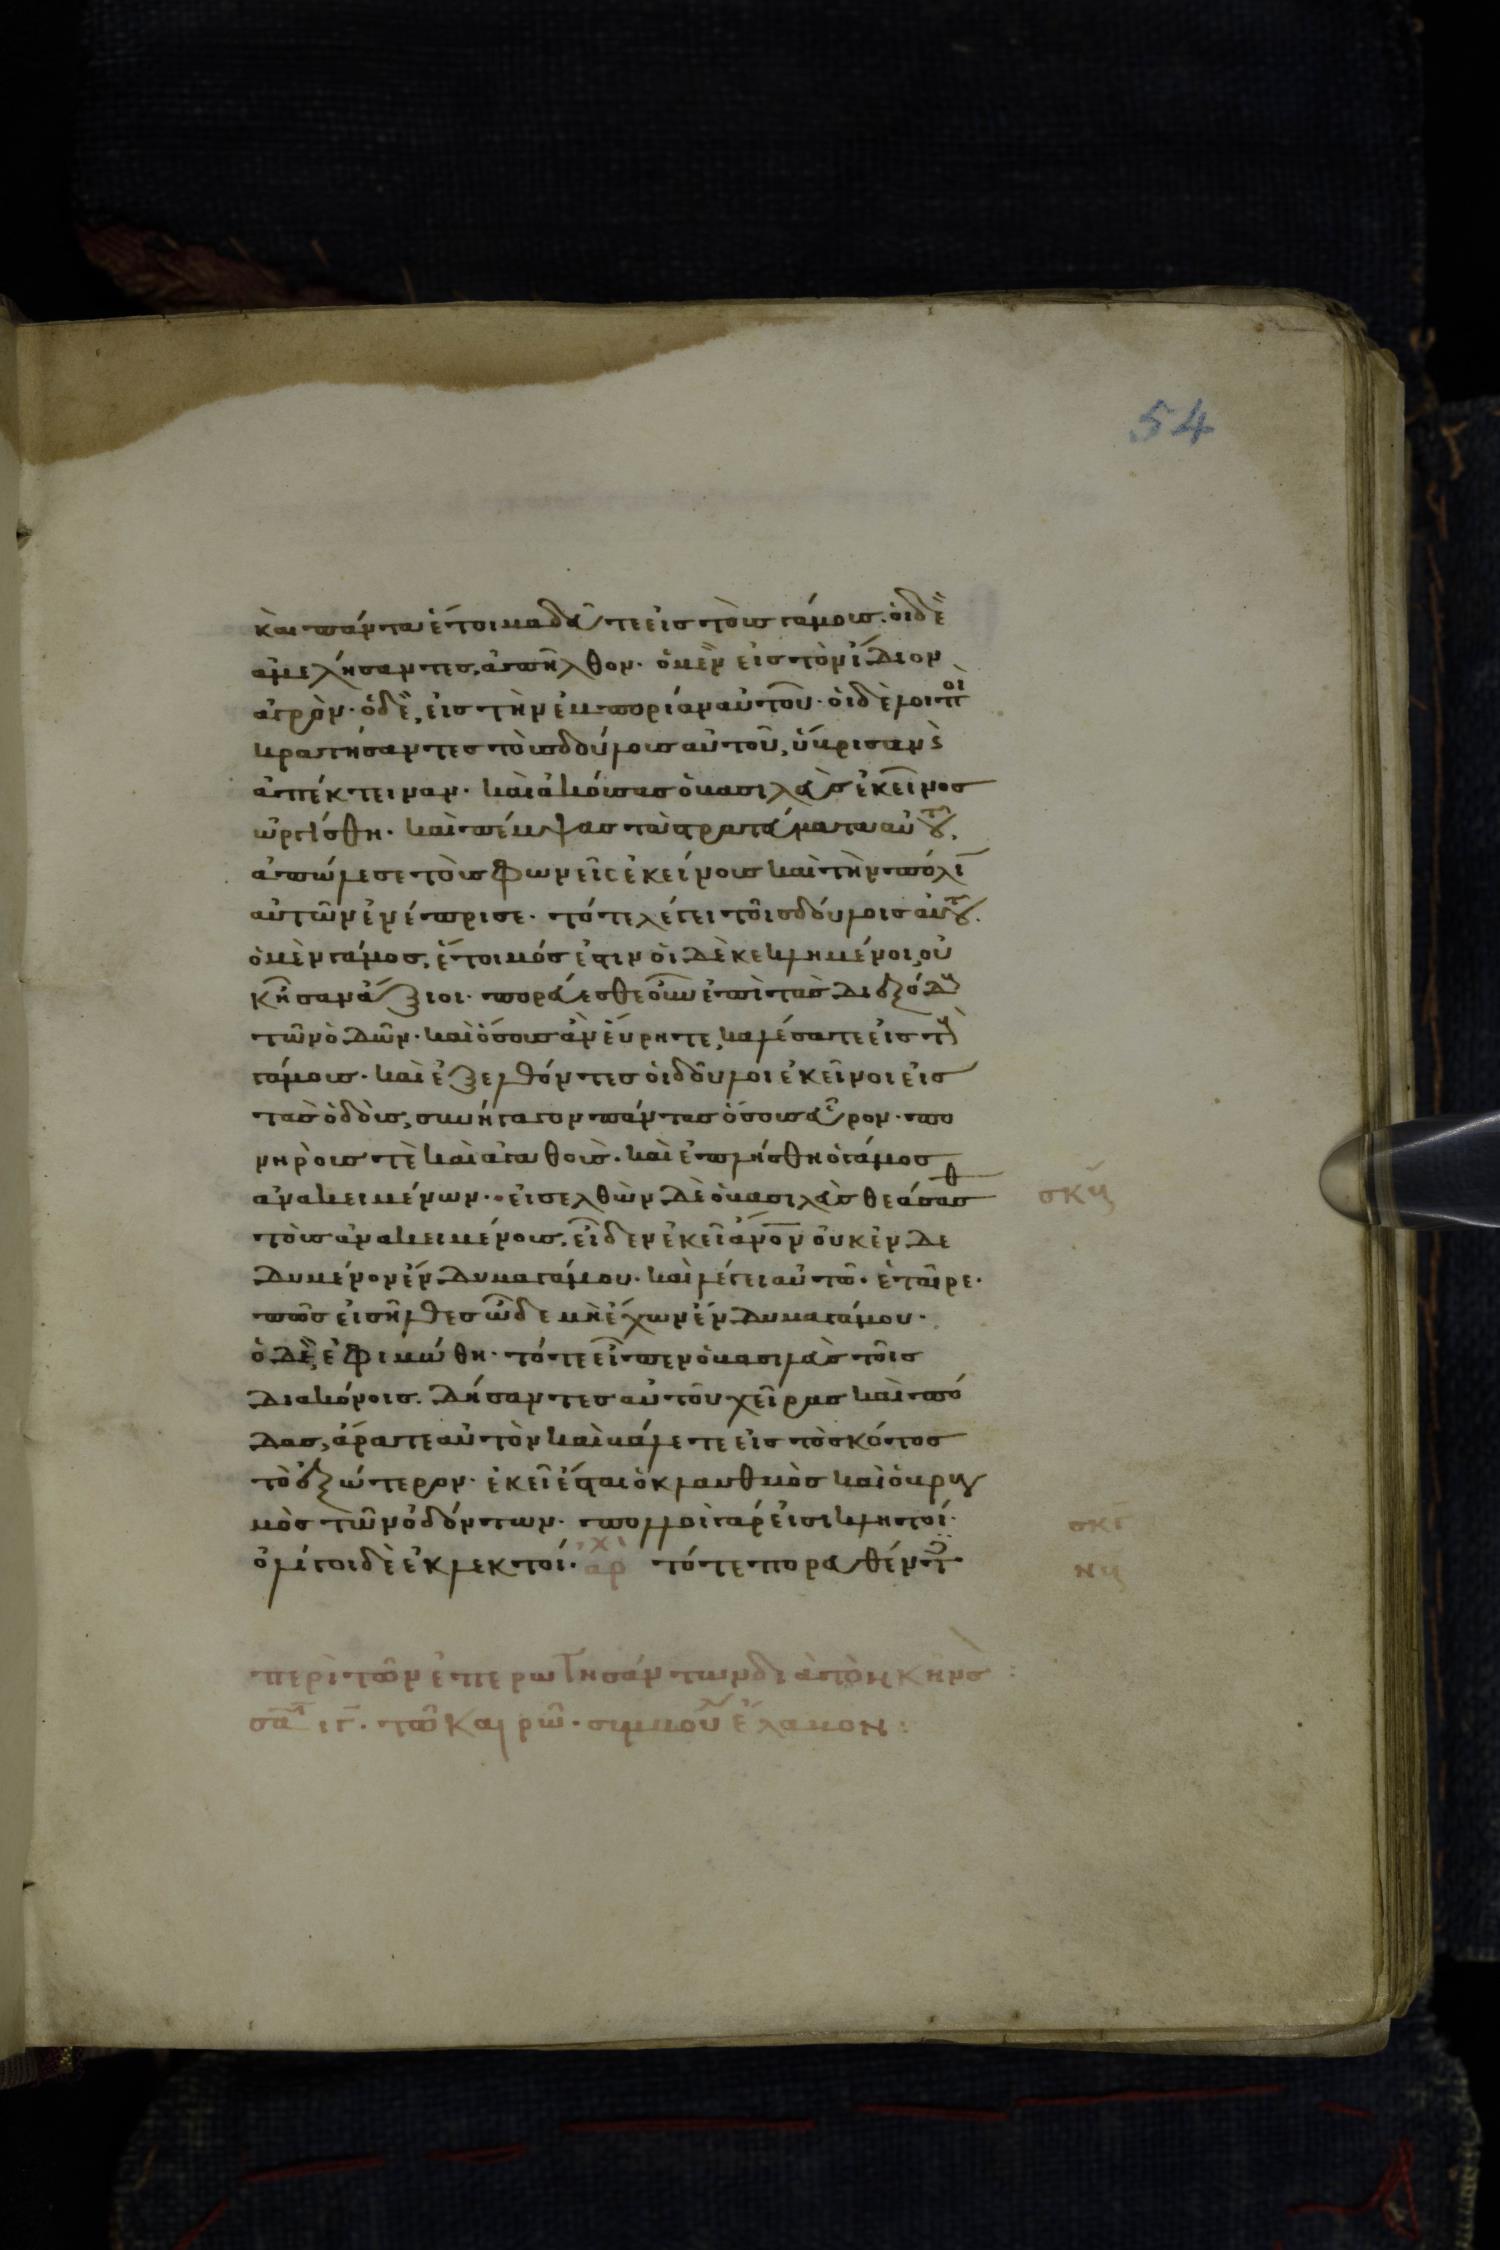 54
καὶ πάντα ἕτοιμα δεῦτε εἰς τοὺς γάμους. οἱ δὲ
ἀμελήσαντες, ἀπῆλθον. ὁ μὲν εἰς τὸν ἴδιον
ἀγρόν. ὁ δὲ, εἰς τὴν ἐμπορίαν αὐτοῦ. οἱ δὲ λοιποὶ
κρατήσαντες τοὺς δούλους αὐτοῦ, ὕβρισαν ϗ
ἀπέκτειναν. καὶ ἀκούσας ὁ βασιλεὺς ἐκεῖνος
ὠργίσθη. καὶ πέμψας τὰ στρατεύματα αὐτοῦ,
ἀπώλεσε τοὺς φωνεῖς ἐκείνους καὶ τὴν πόλιν
αὐτῶν ἐνέπρισε. τότε λέγει τοῖς δούλοις αὐτοῦ.
ὁ μὲν γάμος, ἕτοιμός ἐστιν οἱ δὲ κεκλημένοι, οὐ
κ ἦσαν ἄξιοι. πορεύεσθε οὖν ἐπὶ τὰς διεξόδους
τῶν ὁδῶν. καὶ ὅσους ἂν εὕρητε, καλέσατε εἰς τοὺς
γάμους. καὶ ἐξελθόντες οἱ δοῦλοι ἐκεῖνοι εἰς
τὰς ὁδοὺς, συνήγαγον πάντας ὅσους εὗρον. πο
νηρούς τὲ καὶ ἀγαθούς. καὶ ἐπλήσθη ὁ γάμος
ἀνακειμένων. εἰσελθὼν δὲ ὁ βασιλεὺς θεάσασθ
τοὺς ἀνακειμένους, εἶδεν ἐκεῖ ἄνον οὐκ ἐνδε
δυμένον ἔνδυμα γάμου. καὶ λέγει αὐτῶ. ἑταῖρε.
πῶς εἰσῆλθες ὧδε μὴ ἔχων ἔνδυμα γάμου.
ὁ δὲ, ἐφιμώθη. τότε εἶπεν ὁ βασιλεὺς τοῖς
διακόνοις. δήσαντες αὐτοῦ χεῖρας καὶ πό
δας, ἄρατε αὐτὸν καὶ βάλετε εἰς τὸ σκότος
τὸ ἐξώτερον. ἐκεῖ ἔσται ὁ κλαυθμὸς καὶ ὁ βρυγ
μὸς τῶν ὀδόντων. πολλοὶ γάρ εἰσι κλητοί.
ὀλίγοι δὲ ἐκλεκτοί. ἀρχ τότε πορευθέντες
περὶ τῶν ἐπερωτησάντων διὰ τὸν κῆνσ :
σα ιγ. τῶ καιρῶ. συμβου ἔλαβον :
σκγ